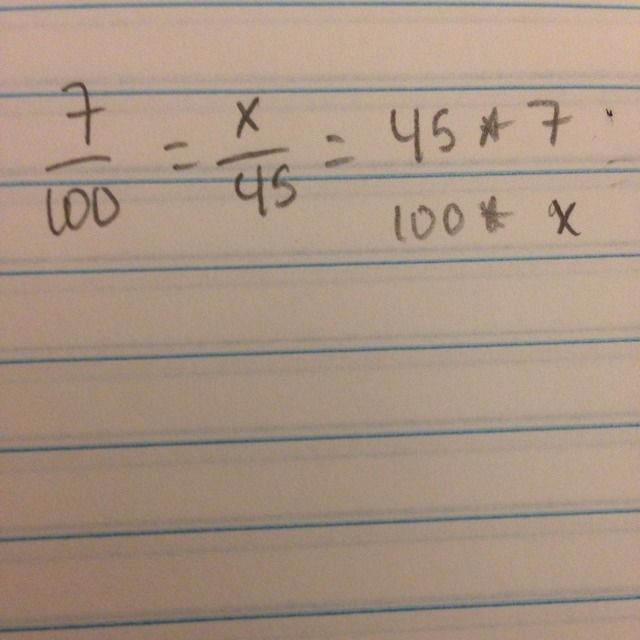 7/100 = x/45 = 45 * 7
100 * x